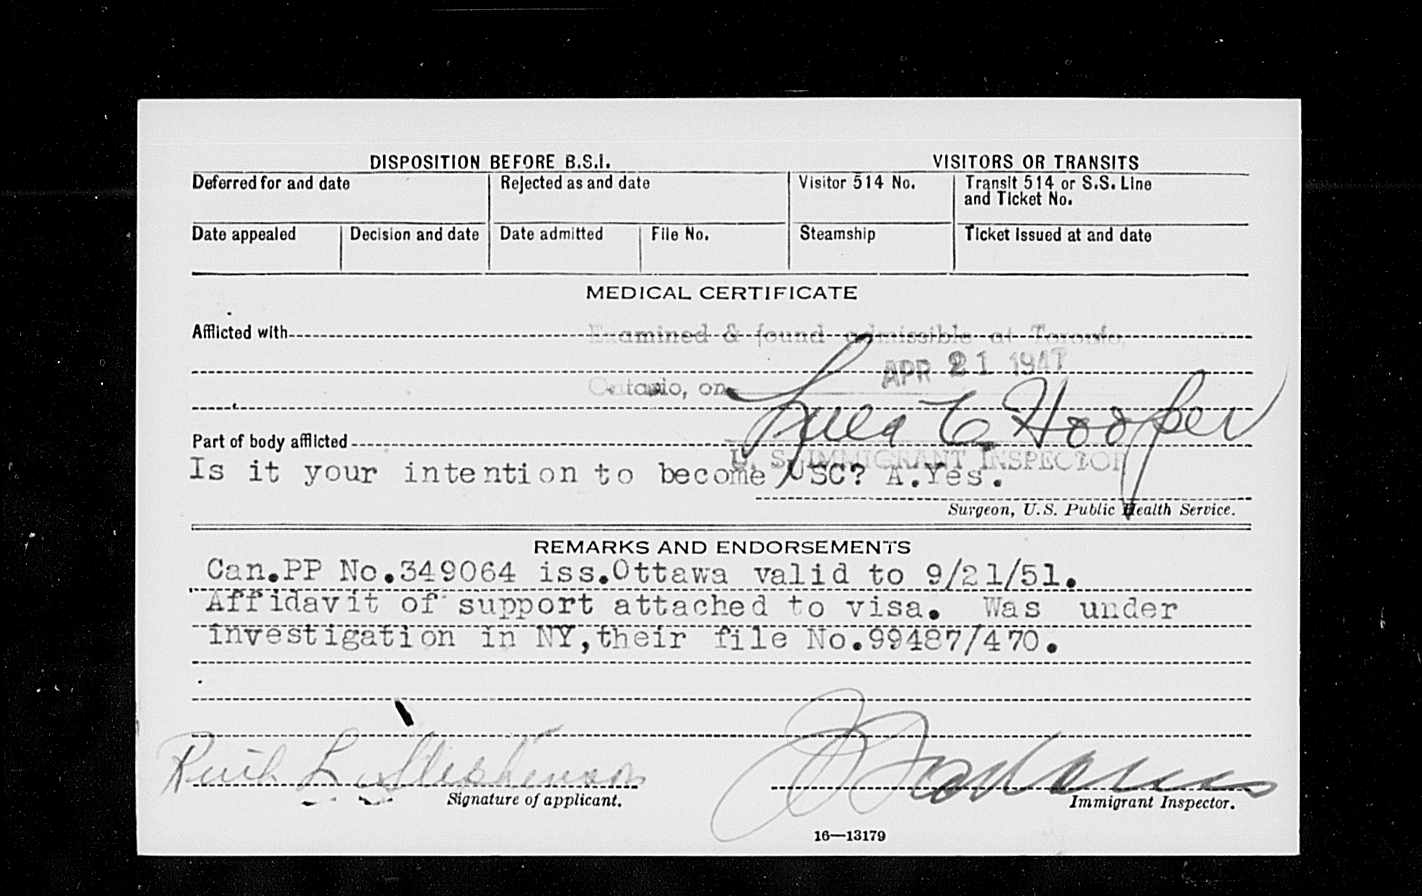 DISPOSITION BEFORE B.S.I. VISITORS OR TRANSITS
Deferred for and date Rejected as and date Visitor 514 No. Transit 514 or S.S. Line and Ticket No.
Date appealed Decision and date Date admitted File No. Steamship Ticket issued at and date
MEDICAL CERTIFICATE
Afflicted with Examined & found admissible at Toronto,
APR 21 1947
Ontario, on
Hooper
Part of body afflicted
U. S. IMMIGRANT INSPECTOR
Is it your intention to become USC? A.Yes.
Surgeon, U.S. Public Health Service.
REMARKS AND ENDORSEMENTS
Can.PP No.349064 iss.Ottawa valid to 9/21/51.
Affidavit of support attached to visa. Was under
investigation in NY,their file No.99487/470.
Ruth L. Stephenson
Signature of applicant. Immigrant Inspector.
16—13179